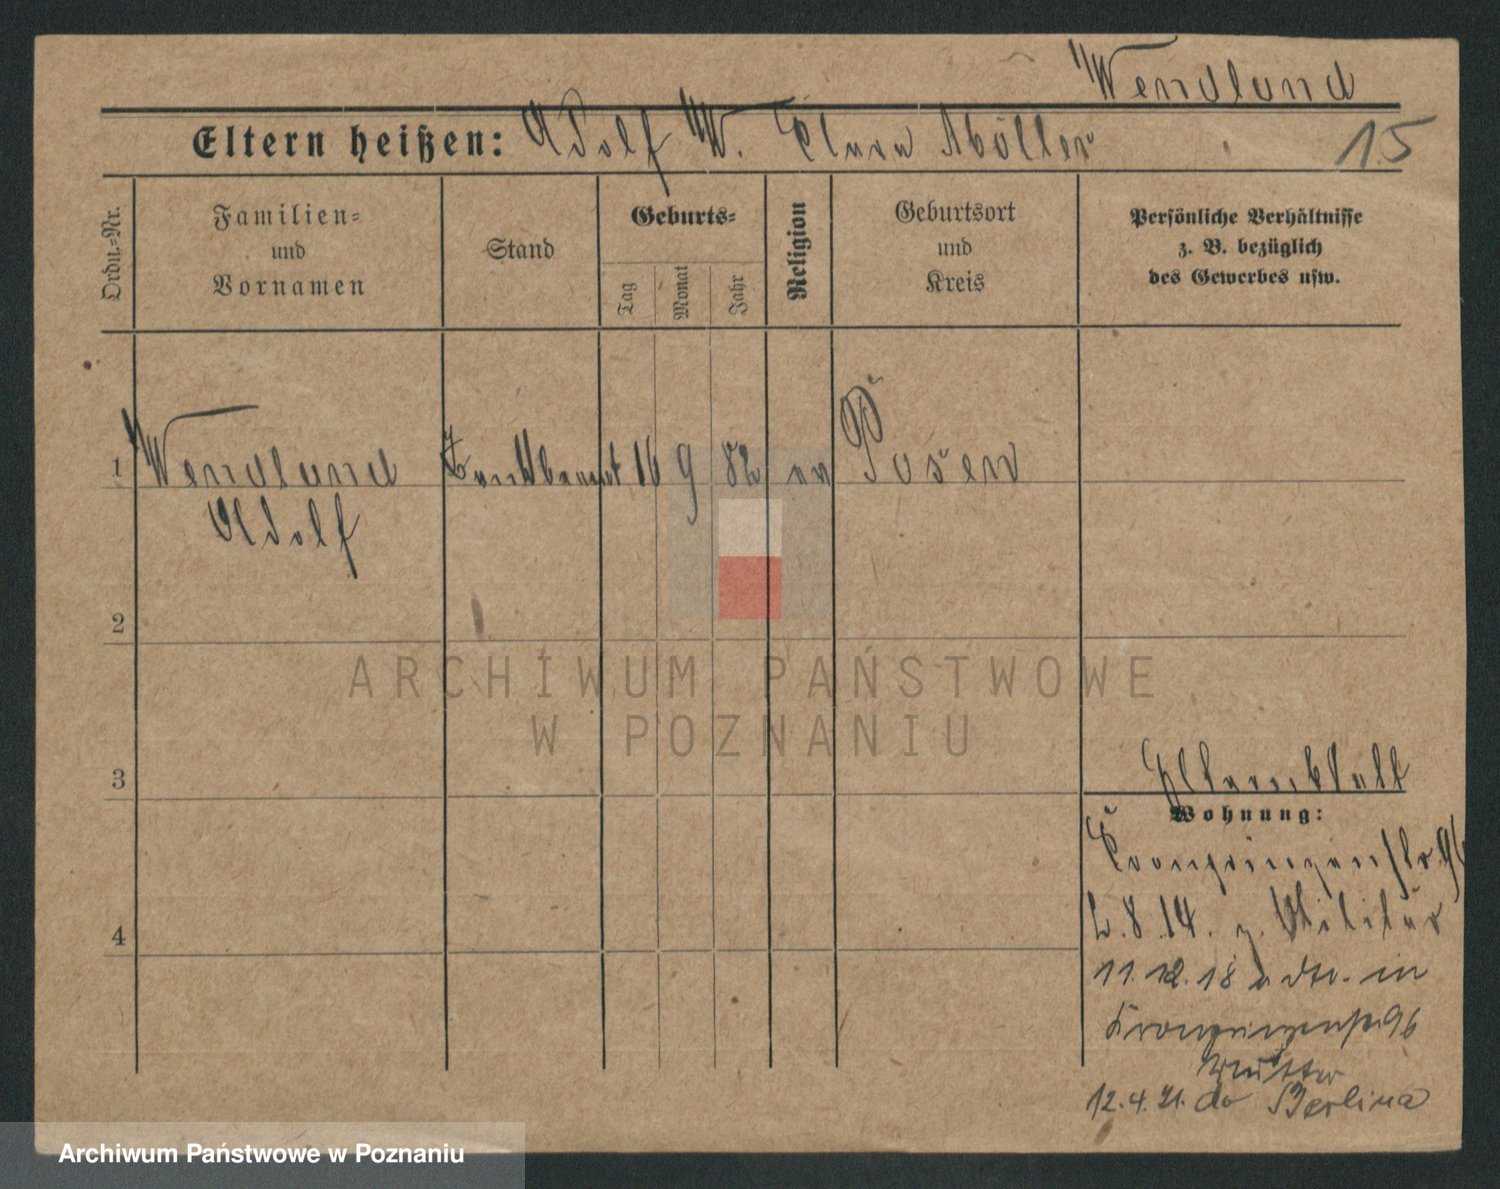 Wendland
Eltern heißen: Adolf W. Clara Möller
15
Ordn.-Nr.
Familien-
und
Vornamen
Stand
Geburts-
Tag
Monat
Jahr
Religion
Geburtsort
und
Kreis
Persönliche Verhältnisse
z. B. bezüglich
des Gewerbes usw.
1
Wendland
Adolf
16
9
82
ev
Posen
2
3
4
Elternblatt
Wohnung:
Kronprinzenstr. 96
2.8.14. z. Militär
11.12.18 v dto. in
Kronprinzenstr. 96
Mutter
12.4.21. do Berlina
ARCHIWUM PAŃSTWOWE
W POZNANIU
Archiwum Państwowe w Poznaniu